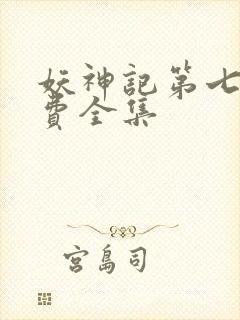 妖神記第七
費全集
宮島司